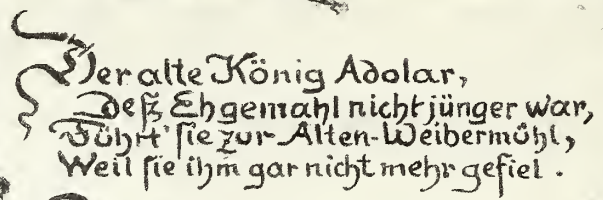 Der alte König Adolar,
Deß Ehgemahl nicht jünger war,
Führt' sie zur Alten-Weibermühl,
Weil sie ihm gar nicht mehr gefiel.